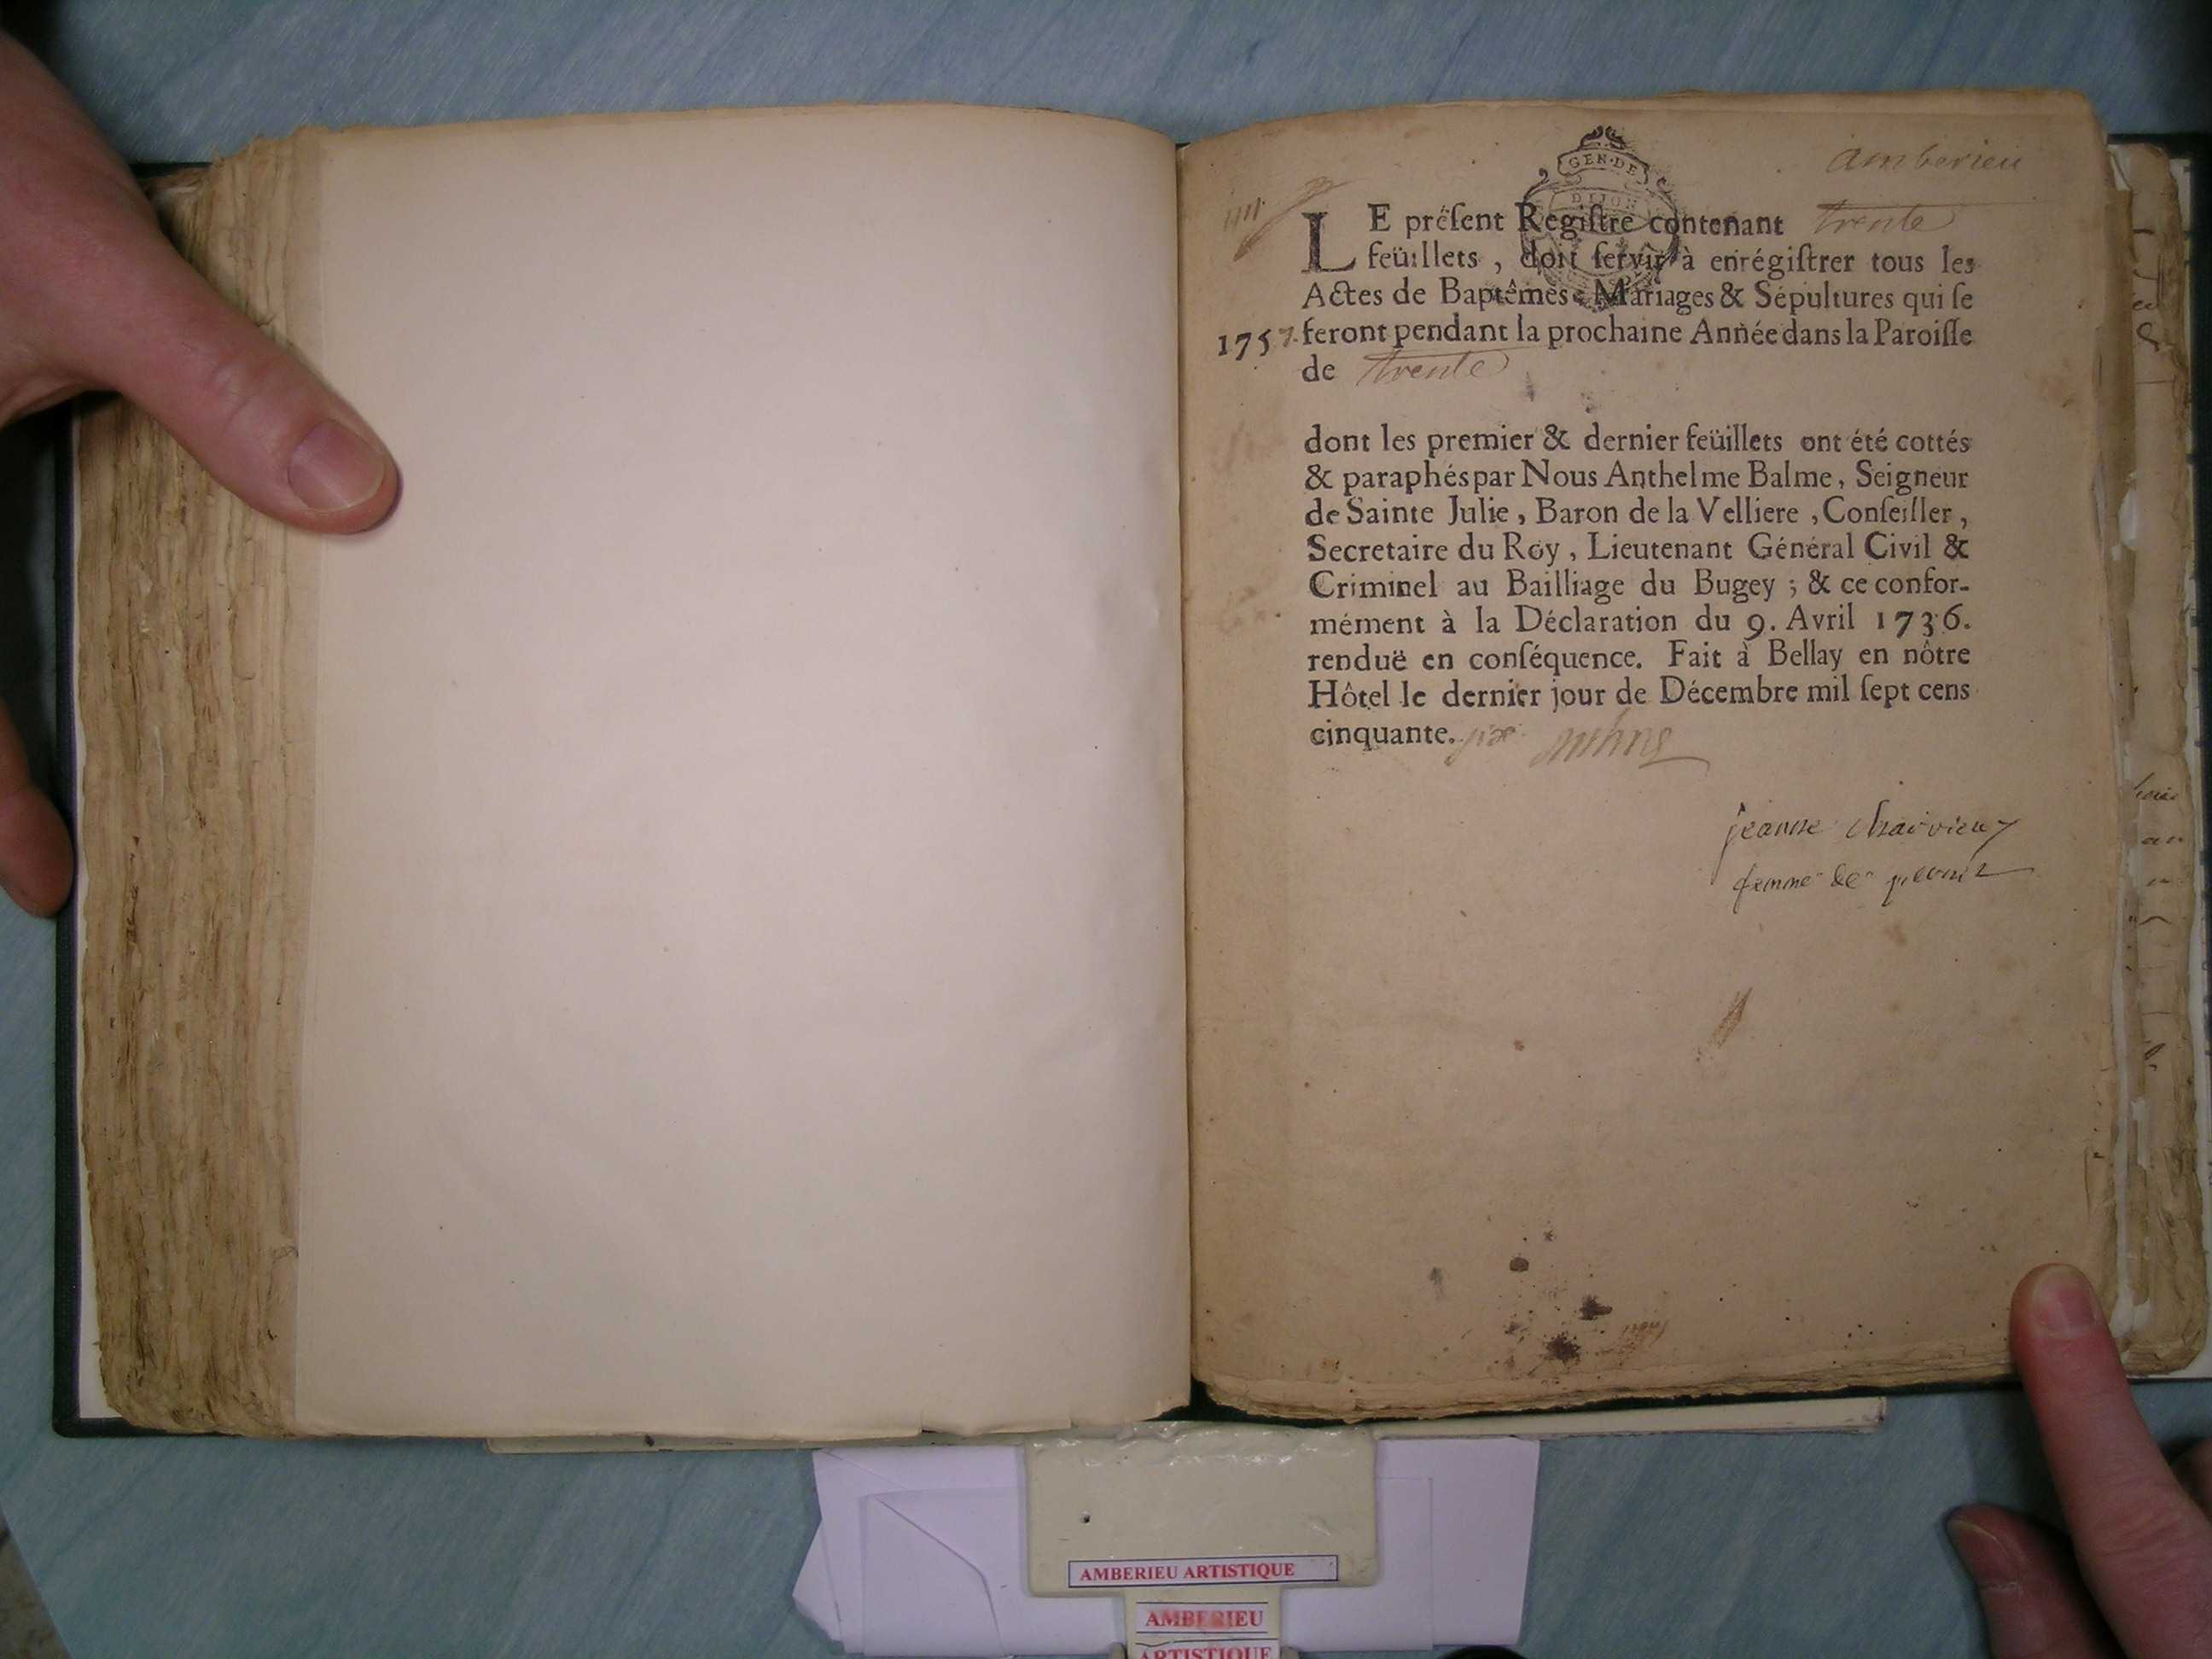 GEN·DE
DIJON
amberieu
LE préſent Regiſtre contenant trente
feüillets, doit ſervir à enrégiſtrer tous les
Actes de Baptêmes, Mariages & Sépultures qui ſe
1757. feront pendant la prochaine Année dans la Paroiſſe
de trente
dont les premier & dernier feüillets ont été cottés
& paraphés par Nous Anthelme Balme, Seigneur
de Sainte Julie, Baron de la Velliere, Conſeiller,
Secretaire du Roy, Lieutenant Général Civil &
Criminel au Bailliage du Bugey ; & ce confor-
mément à la Déclaration du 9. Avril 1736.
renduë en conſéquence. Fait à Bellay en nôtre
Hôtel le dernier jour de Décembre mil ſept cens
cinquante. six
jeanne
femme de
AMBERIEU ARTISTIQUE
AMBERIEU
ARTISTIQUE